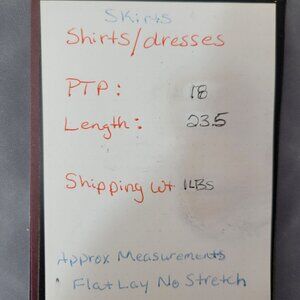 Skirts
Shirts/dresses
PTP: 18
Length: 23.5
Shipping wt 1LBS
Approx Measurements
Flat Lay No Stretch